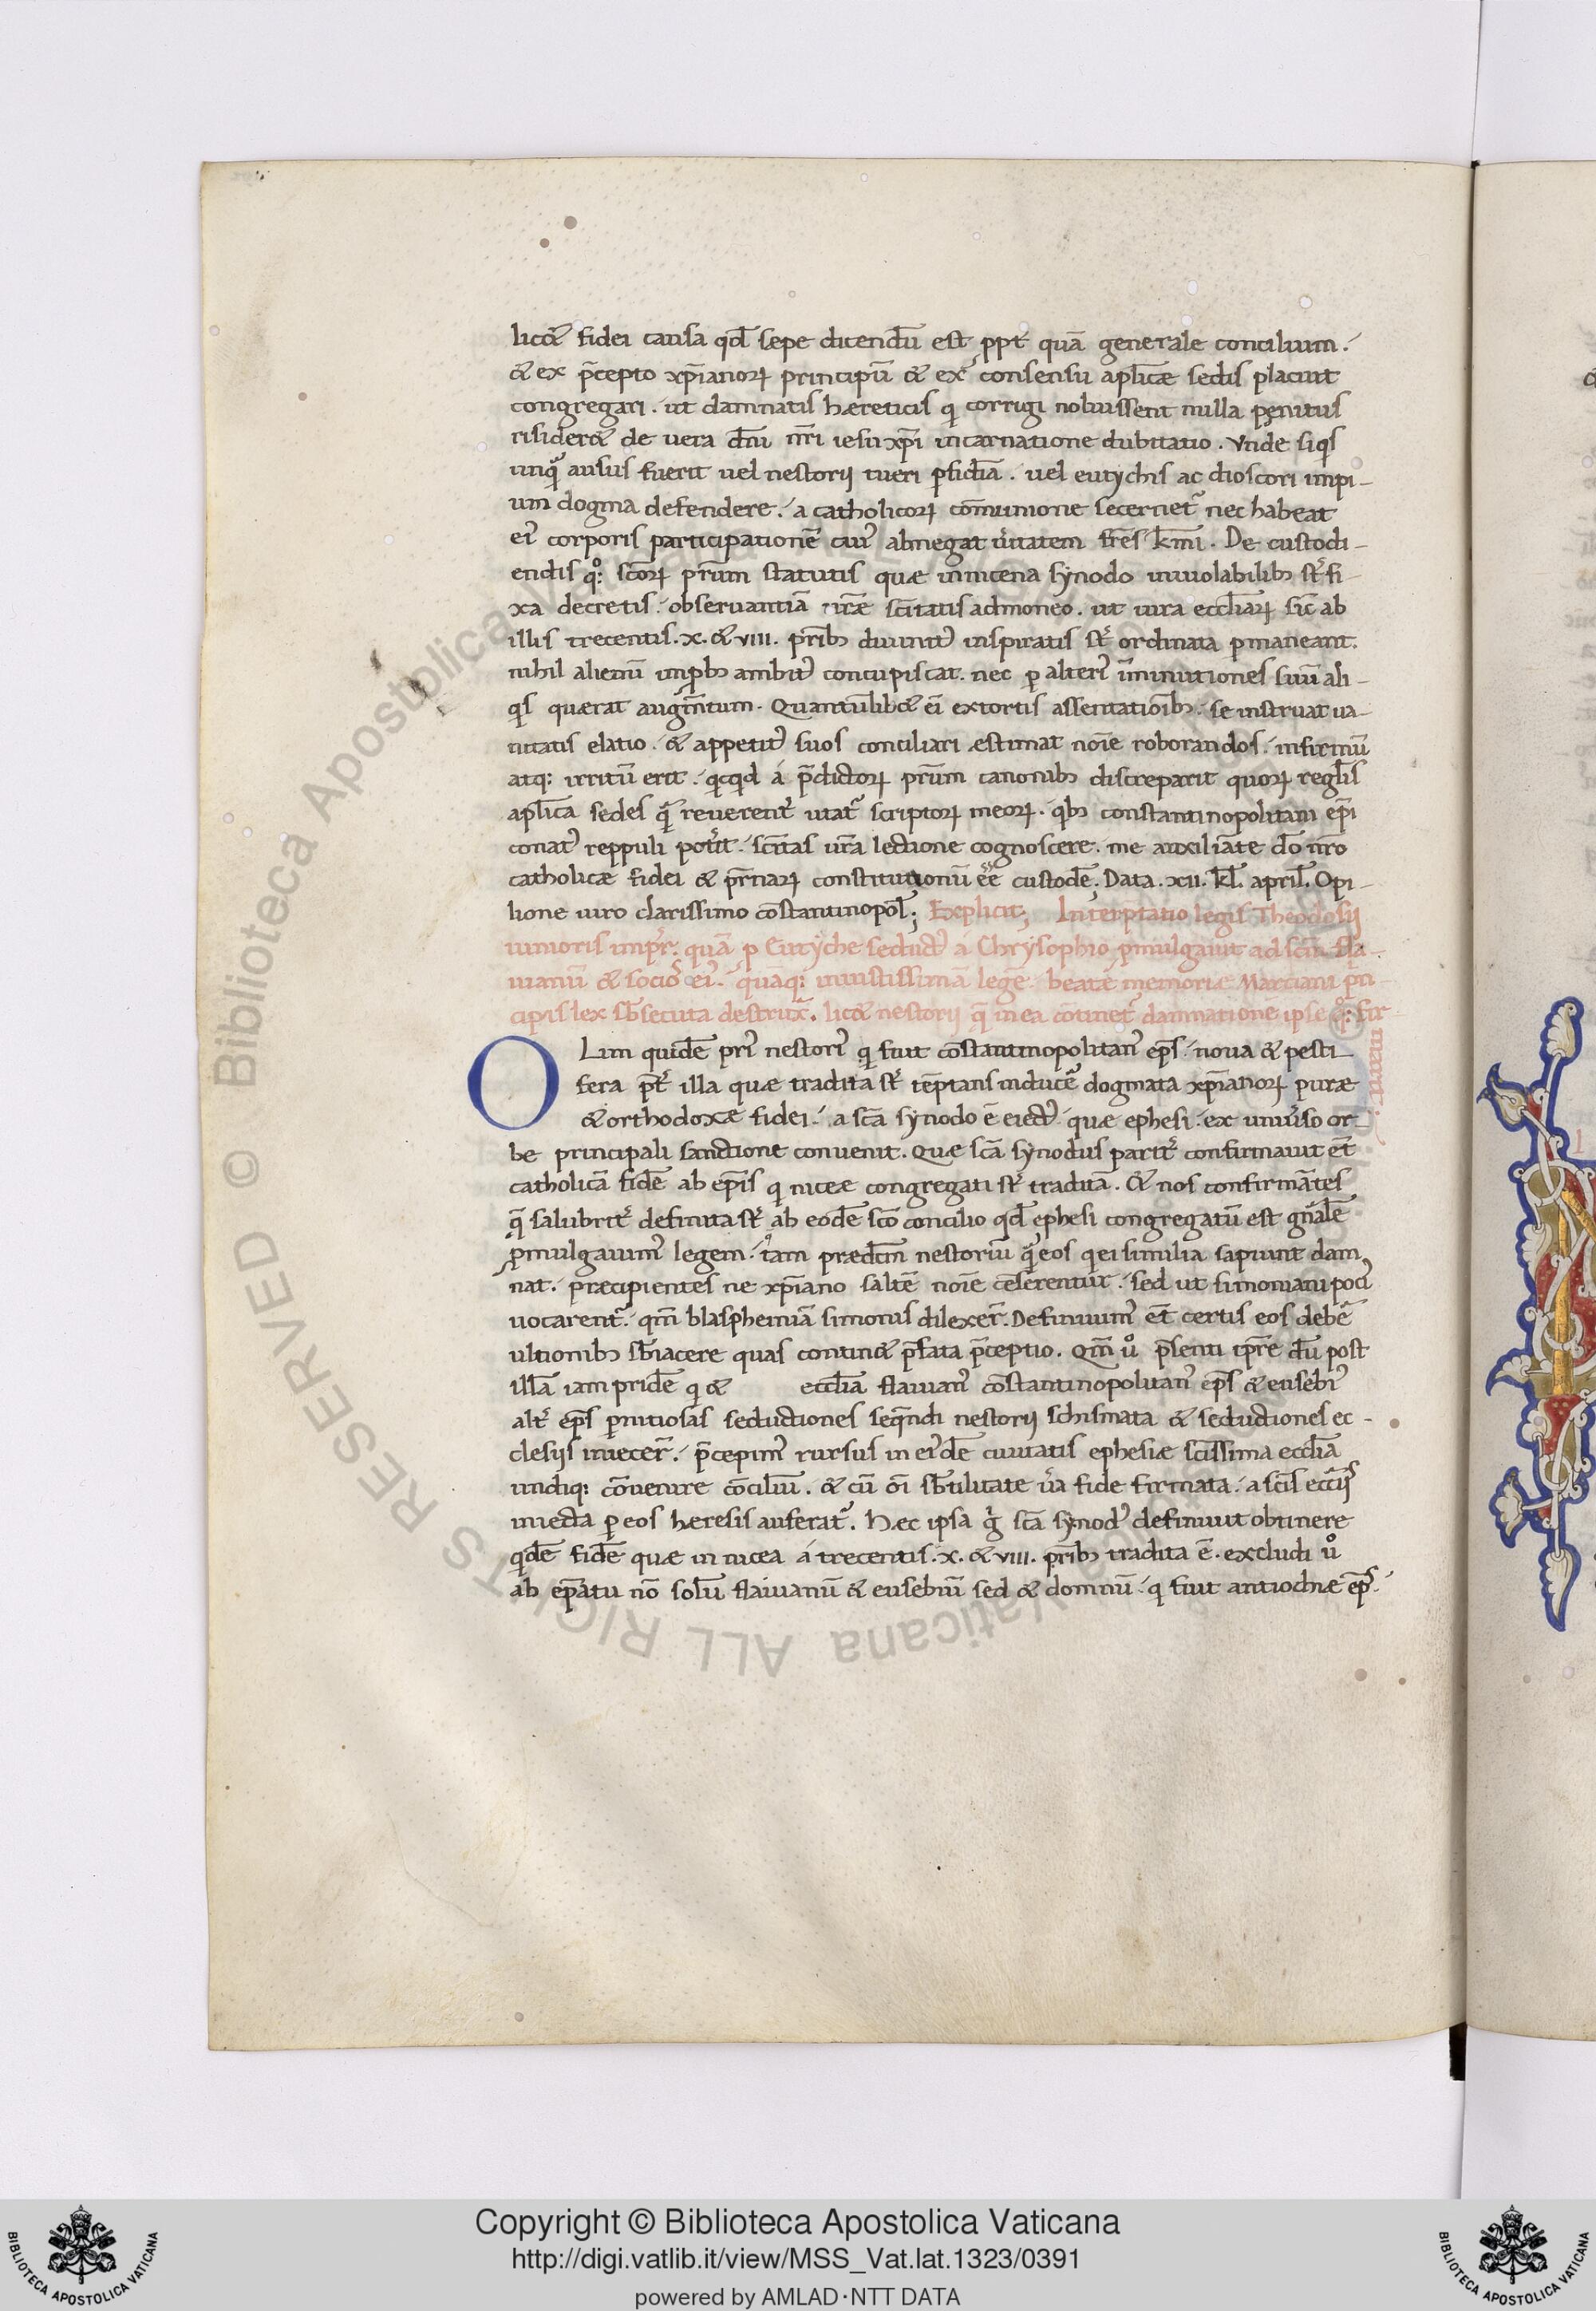 licet fidei causa qd̄ sepe dicendū est ppt quā generale concilium.
& ex p̄cepto xp̄ianoꝝ principū & ex consensu aplicæ sedis placuit
congregari. ut damnatis hæreticis q̇ corrigi noluissent nulla penitus
risideret de uera dn̄i nr̄i iesu xp̄i incarnatione dubitatio. Vnde siq̇s
unq̄ ausus fuerit uel nestorij tueri ꝑfidiā. uel eutychis ac dioscori impi-
um dogma defendere. a catholicoꝝ cōmunione secernet᷑ nec habeat
ei᷒ corporis participationē cui᷒ abnegat ũitatem fr̄es k̄mi. De custodi-
endis qͦ: sc̄oꝝ pr̄um statutis quæ in nicena synodo inuiolabilibꝫ st̄ fi-
xa decretis. obseruantiā ur̄æ sc̄itatis admoneo. ut iura ecclīaꝝ sic̄ ab
illis trecentis. x. & viii. pr̄ibꝫ diuinit᷑ inspiratis st̄ ordinata ꝑmaneant.
nihil alienū impꝛobꝫ ambit᷒ concupiscat. nec ꝑ alteri᷒ im̄inutiones suū ali-
q̇s quærat augm̄tum. Quantūlibet ei̅ extortis assentatioībꝫ. se instruat ua-
nitatis elatio. & appetit᷒ suos conciliari æstimat noīe roborandos. infirmū
atq: irritū erit. q̇cq̇d á p̄dictoꝝ pr̄um canonibꝫ discreparit quoꝝ regl̄is
apl̄ica sedes q̄ reuerent᷑ utat᷑ scriptoꝝ meoꝝ. q̇bꝫ constantinopolitani ep̄i
conat᷒ reppuli pot᷑it. sc̄itas ur̄a lectione cognoscere. me auxiliāte dō nr̄o
catholicæ fidei & pr̄naꝝ constitutionū eē custodē. Data. xii. kl̄. april̄. Opi-
lione uiro clarissimo cōstantinopol̄; Explicit; Interp̄tatio legis Theodosij
iunioris impr̄. quā ꝑ Eutyche seduct᷒ a Chrysophio ꝓmulgauit ad sc̄m fla-
uianū & socioˢ ei᷒. quāq: iniustissimā legē. beatę memoriæ Marciani pͥn-
cipis lex sb̄secuta destrux̄. licet nestorij q̄ in ea cōtinet᷑ damnationē ipse qͦ: fir
mauit.
Olim quidē pri᷒ nestori᷒ q̇ fuit cōstantinopolitan᷒ ep̄s. noua & pesti-
fera p̄t illa quæ tradita st̄ tēptans inducē dogmata xp̄ianoꝝ puræ
& orthodoxæ fidei. a sc̄a synodo ē eiect᷒. quæ ephesi. ex uniũso or-
be principali sanctione conuenit. Quæ sc̄a synodus parit᷑ confirmauit et̄
catholicā fidē ab ep̄is q̇ niceæ congregati st̄ traditā. & nos confirmātes
q̄ salubrit᷑ definita st̄ ab eodē sc̄o concilio qd̄ ephesi congregatū est gn̄alē
ꝓmulgauim᷒ legem. tam prædc̄m nestoriū q̄ eos q̇ ei similia sapiunt dam
nat. præcipientes ne xp̄iano saltē noīe cēserentur. sed ut simoniani poti᷒
uocarent᷑. qm̄ blasphemiā simonis dilexer̄. Definiuim᷒ et̄ certis eos debē
ultionibꝫ sb̄iacere quas continet p̄fata p̄ceptio. Qm̄ uͦ p̄senti tp̄re dū post
illā iam pridē q̇ & ecclīā flauian᷒ cōstantinopolitan᷒ ep̄s & eusebi᷒
alt᷑ ep̄s ꝑnitiosas seductiones seq̄ndi nestorij schismata & seductiones ec-
clesijs iniecer̄. p̄cepim᷒ rursus in ei᷒dē ciuitatis ephesiæ sc̄issima ecclīā
undiq: cōuenire cōciliū. & cū oī sb̄tilitate ũa fide firmata. a sc̄is ecc̄ijs
iniecta ꝑ eos heresis auferat᷑. Hæc ipsa gͥ sc̄a synod᷒ definiuit obtinere
q̇dē fidē quæ in nicea á trecentis. x. & viii. pr̄ibꝫ tradita ē. excludi uͦ
ab ep̄atu nō solū flauianū & eusebiū sed & domnū. q̇ fuit antiochiæ ep̄s.
Biblioteca Apostolica Vaticana ALL RIGHTS RESERVED ©
Copyright © Biblioteca Apostolica Vaticana
http://digi.vatlib.it/view/MSS_Vat.lat.1323/0391
powered by AMLAD·NTT DATA
BIBLIOTECA APOSTOLICA VATICANA
BIBLIOTECA APOSTOLICA VATICANA